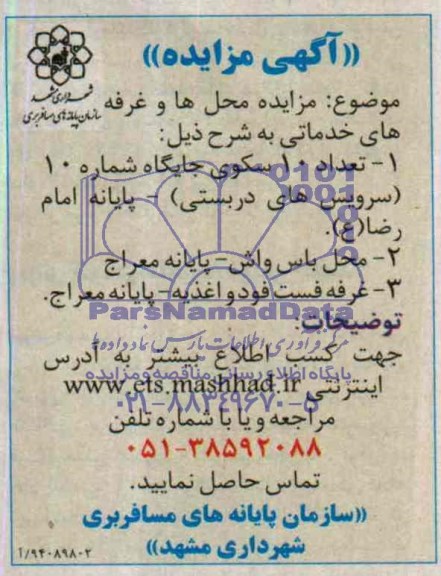 «آگهی مزایده»
شهرداری مشهد
سازمان پایانه های مسافربری
موضوع: مزایده محل ها و غرفه
های خدماتی به شرح ذیل:
۱- تعداد ۱۰ سکوی جایگاه شماره ۱۰
(سرویس های دربستی) - پایانه امام
رضا(ع).
۲- محل باس واش- پایانه معراج
۳- غرفه فست فود و اغذیه- پایانه معراج.
ParsNamadData
توضیحات:
مرکز فرآوری اطلاعات پارس نماد داده ها
جهت کسب اطلاع بیشتر به آدرس
پایگاه اطلاع رسانی مناقصه و مزایده
اینترنتی www.ets.mashhad.ir
۰۲۱-۸۸۳۴۹۶۷۰-۵
مراجعه و یا با شماره تلفن
۰۵۱-۳۸۵۹۲۰۸۸
تماس حاصل نمایید.
«سازمان پایانه های مسافربری
شهرداری مشهد»
۹۴۰۸۹۸۰۲/آ